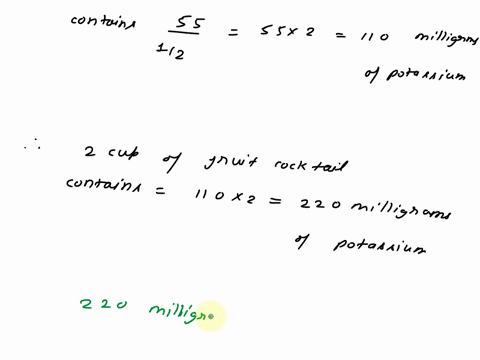 contains 55/1/2 = 55 × 2 = 110 milligrams
of potassium
∴ 2 cup of fruit cocktail
contains = 110 × 2 = 220 milligrams
of potassium
220 milligr